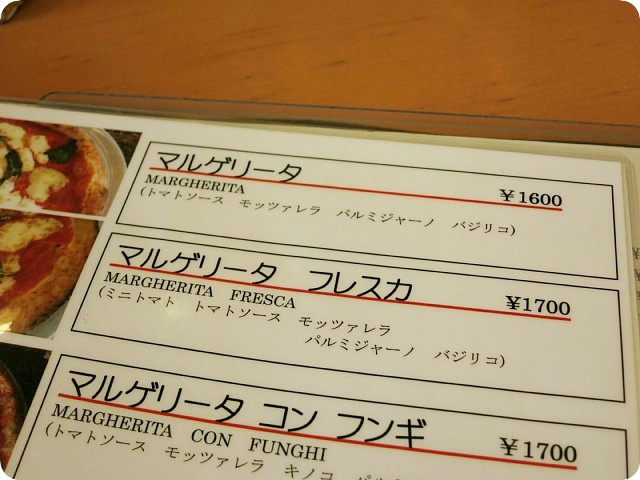 マルゲリータ
MARGHERITA ￥1600
(トマトソース モッツァレラ パルミジャーノ バジリコ)
マルゲリータ フレスカ
MARGHERITA FRESCA ￥1700
(ミニトマト トマトソース モッツァレラ
パルミジャーノ バジリコ)
マルゲリータ コン フンギ
MARGHERITA CON FUNGHI ￥1700
(トマトソース モッツァレラ キノコ